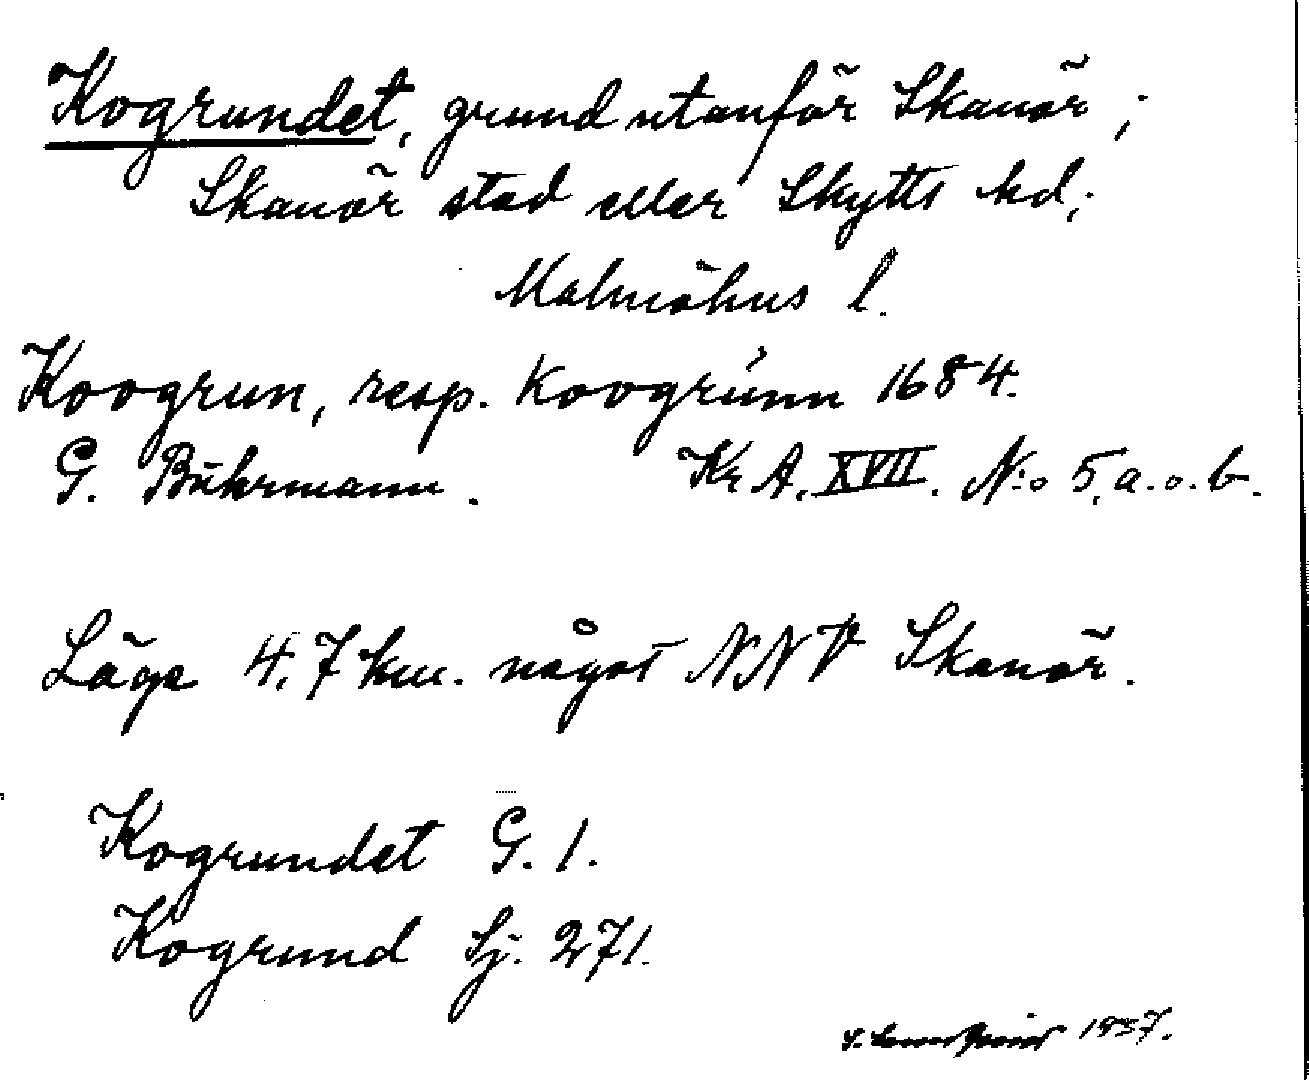 Kogrundet, grund utanför Skanör;
Skanör stad eller Skytts hd;
Malmöhus l.
Koogrun, resp. Koogrúnn 1684.
G. Buhrmann. Kr A. XVII. N:o 5, a. o. b.
Läge 4,7 km. något NNV Skanör.
Kogrundet G. 1.
Kogrund Sj. 271.
1937.